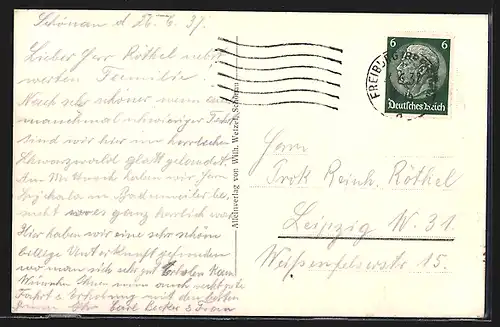 Schönau d 26. 6. 37.
Lieber Herr Röthel nebst
werten Familie.
Nach sehr schöner wenn auch
manchmal schwieriger Fahrt
sind wir hier im herrlichen
Schwarzwald glatt gelandet.
Am Mittwoch haben wir Herrn
in Badenweiler be-
sucht wo es ganz herrlich war
Hier haben wir eine sehr schön
billige Unterkunft gefunden
wo man sich sehr gut erholen kann
Wünschen Ihnen auch recht gute
Fahrt & Erholung mit den besten
Ihr Carl Becker & Frau
Alleinverlag von Wilh. Wetzel, Schönau
6 6
Deutsches Reich
FREIBURG
Herrn
Reinh. Röthel
Leipzig W. 31.
Weißenfelserstr 15.